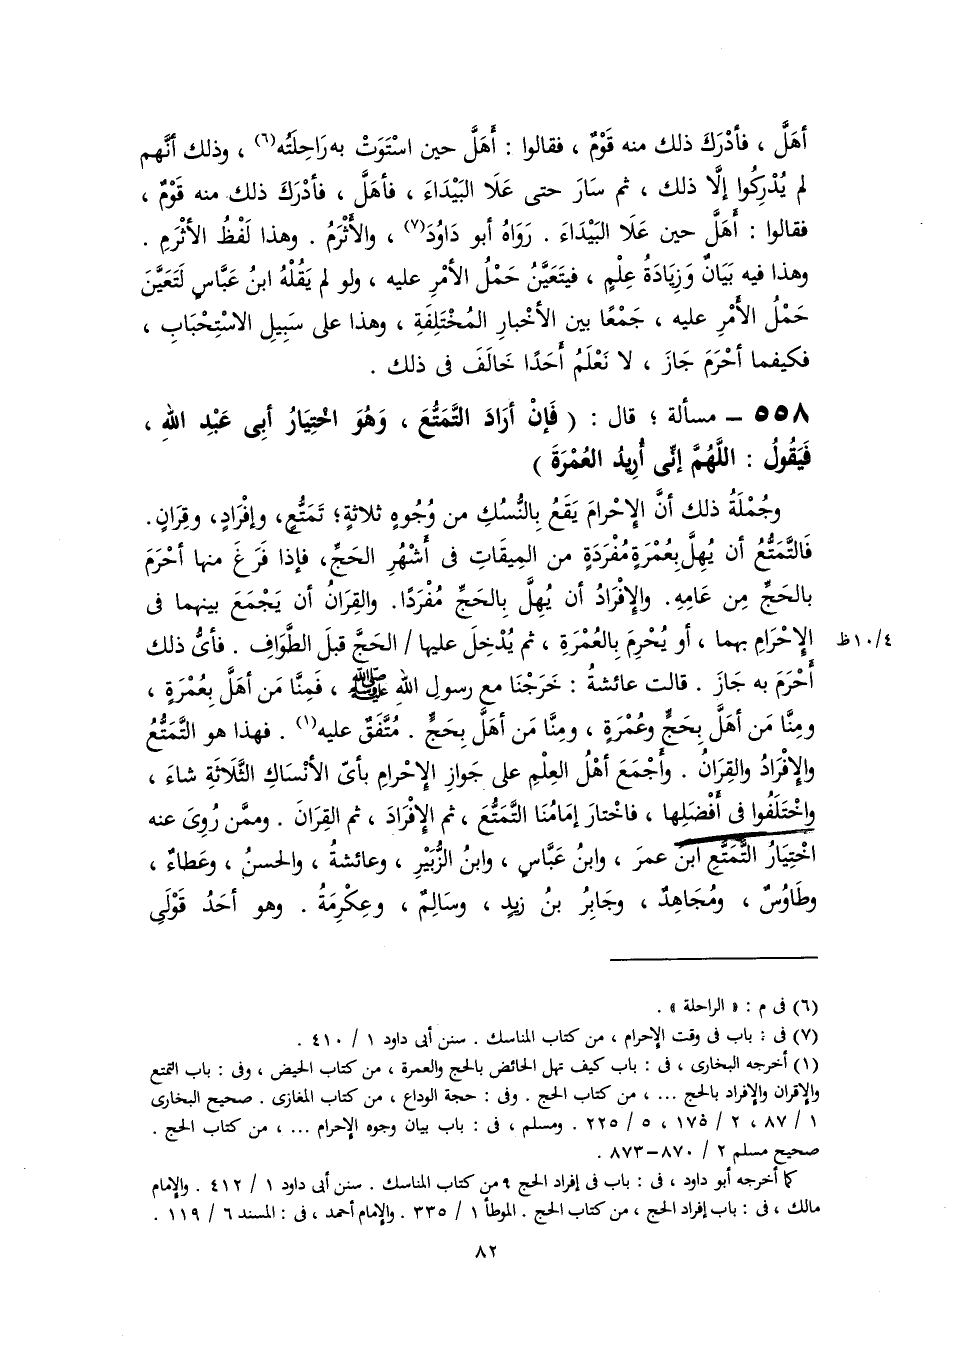 أهَلَّ ، فأدْرَكَ ذلك منه قَوْمٌ ، فقالوا : أَهَلَّ حين اسْتَوَتْ به رَاحِلَتُه(٦) ، وذلك أنَّهم
لم يُدْرِكُوا إلَّا ذلك ، ثم سَارَ حتى عَلَا البَيْدَاءَ ، فأهَلَّ ، فأدْرَكَ ذلك منه قَوْمٌ ،
فقالوا : أَهَلَّ حين عَلَا البَيْدَاءَ . رَوَاهُ أبو دَاوُدَ(٧) ، والأثْرَمُ . وهذا لَفْظُ الأثْرَمِ .
وهذا فيه بَيَانٌ وَزِيَادَةُ عِلْمٍ ، فيتَعَيَّنُ حَمْلُ الأمْرِ عليه ، ولو لم يَقُلْهُ ابنُ عَبَّاسٍ لَتَعَيَّنَ
حَمْلُ الأَمْرِ عليه ، جَمْعًا بين الأخْبارِ المُخْتَلِفَةِ ، وهذا على سَبِيلِ الاسْتِحْبَابِ ،
فكيفما أحْرَمَ جَازَ ، لا نَعْلَمُ أَحَدًا خَالَفَ فى ذلك .
٥٥٨ – مسألة ؛ قال : ( فَإنْ أرَادَ التَّمَتُّعَ ، وَهُوَ اخْتِيَارُ أبِى عَبْدِ اللهِ ،
فَيَقُولُ : اللَّهُمَّ إنِّى أُرِيدُ العُمْرَةَ )
وجُمْلَةُ ذلك أنَّ الإحْرامَ يَقَعُ بِالنُّسُكِ من وُجُوهٍ ثلاثةٍ؛ تَمَتُّعٍ، وإفْرَادٍ، وقِرَانٍ.
فَالتَّمَتُّعُ أن يُهِلَّ بِعُمْرَةٍ مُفْرَدَةٍ من المِيقَاتِ فى أَشْهُرِ الحَجِّ، فإذا فَرَغَ منها أحْرَمَ
بالحَجِّ مِن عَامِهِ. والإفْرَادُ أن يُهِلَّ بِالحَجِّ مُفْرَدًا. والقِرَانُ أن يَجْمَعَ بينهما فى
الإحْرَامِ بهما ، أو يُحْرِمَ بِالعُمْرَةِ ، ثم يُدْخِلَ عليها / الحَجَّ قبلَ الطَّوَافِ . فأىُّ ذلك
٤/١٠ظ
أَحْرَمَ به جَازَ . قالت عائشةُ : خَرَجْنَا مع رسولِ اللهِ ﷺ ، فَمِنَّا مَن أهَلَّ بِعُمْرَةٍ ،
ومِنَّا مَن أهَلَّ بِحَجٍّ وعُمْرَةٍ ، ومِنَّا مَن أهَلَّ بِحَجٍّ . مُتَّفَقٌ عليه(١) . فهذا هو التَّمَتُّعُ
والإفْرَادُ والقِرَانُ . وأجْمَعَ أهْلُ العِلْمِ على جَوازِ الإحْرامِ بأىِّ الأنْساكِ الثَّلَاثَةِ شاءَ ،
واخْتَلَفُوا فى أَفْضَلِها ، فاختارَ إمَامُنَا التَّمَتُّعَ ، ثم الإفْرَادَ ، ثم القِرَانَ . وممَّن رُوِىَ عنه
اخْتِيَارُ التَّمَتُّعِ ابنُ عمرَ ، وابنُ عَبَّاسٍ ، وابنُ الزُّبَيْرِ ، وعائشةُ ، والحسنُ ، وعَطاءٌ ،
وطَاوُسٌ ، ومُجَاهِدٌ ، وجَابِرُ بنُ زيدٍ ، وسَالِمٌ ، وعِكْرِمَةُ . وهو أحَدُ قَوْلَىِ
(٦) فى م : « الراحلة » .
(٧) فى : باب فى وقت الإحرام ، من كتاب المناسك . سنن أبى داود ١ / ٤١٠ .
(١) أخرجه البخارى ، فى : باب كيف تهل الحائض بالحج والعمرة ، من كتاب الحيض ، وفى : باب التمتع
والإقران والإفراد بالحج ... ، من كتاب الحج . وفى : حجة الوداع ، من كتاب المغازى . صحيح البخارى
١ / ٨٧ ، ٢ / ١٧٥ ، ٥ / ٢٢٥ . ومسلم ، فى : باب بيان وجوه الإحرام ... ، من كتاب الحج .
صحيح مسلم ٢ / ٨٧٠–٨٧٣ .
كما أخرجه أبو داود ، فى : باب فى إفراد الحج ، من كتاب المناسك . سنن أبى داود ١ / ٤١٢ . والإمام
مالك ، فى : باب إفراد الحج ، من كتاب الحج . الموطأ ١ / ٣٣٥ . والإمام أحمد ، فى : المسند ٦ / ١١٩ .
٨٢